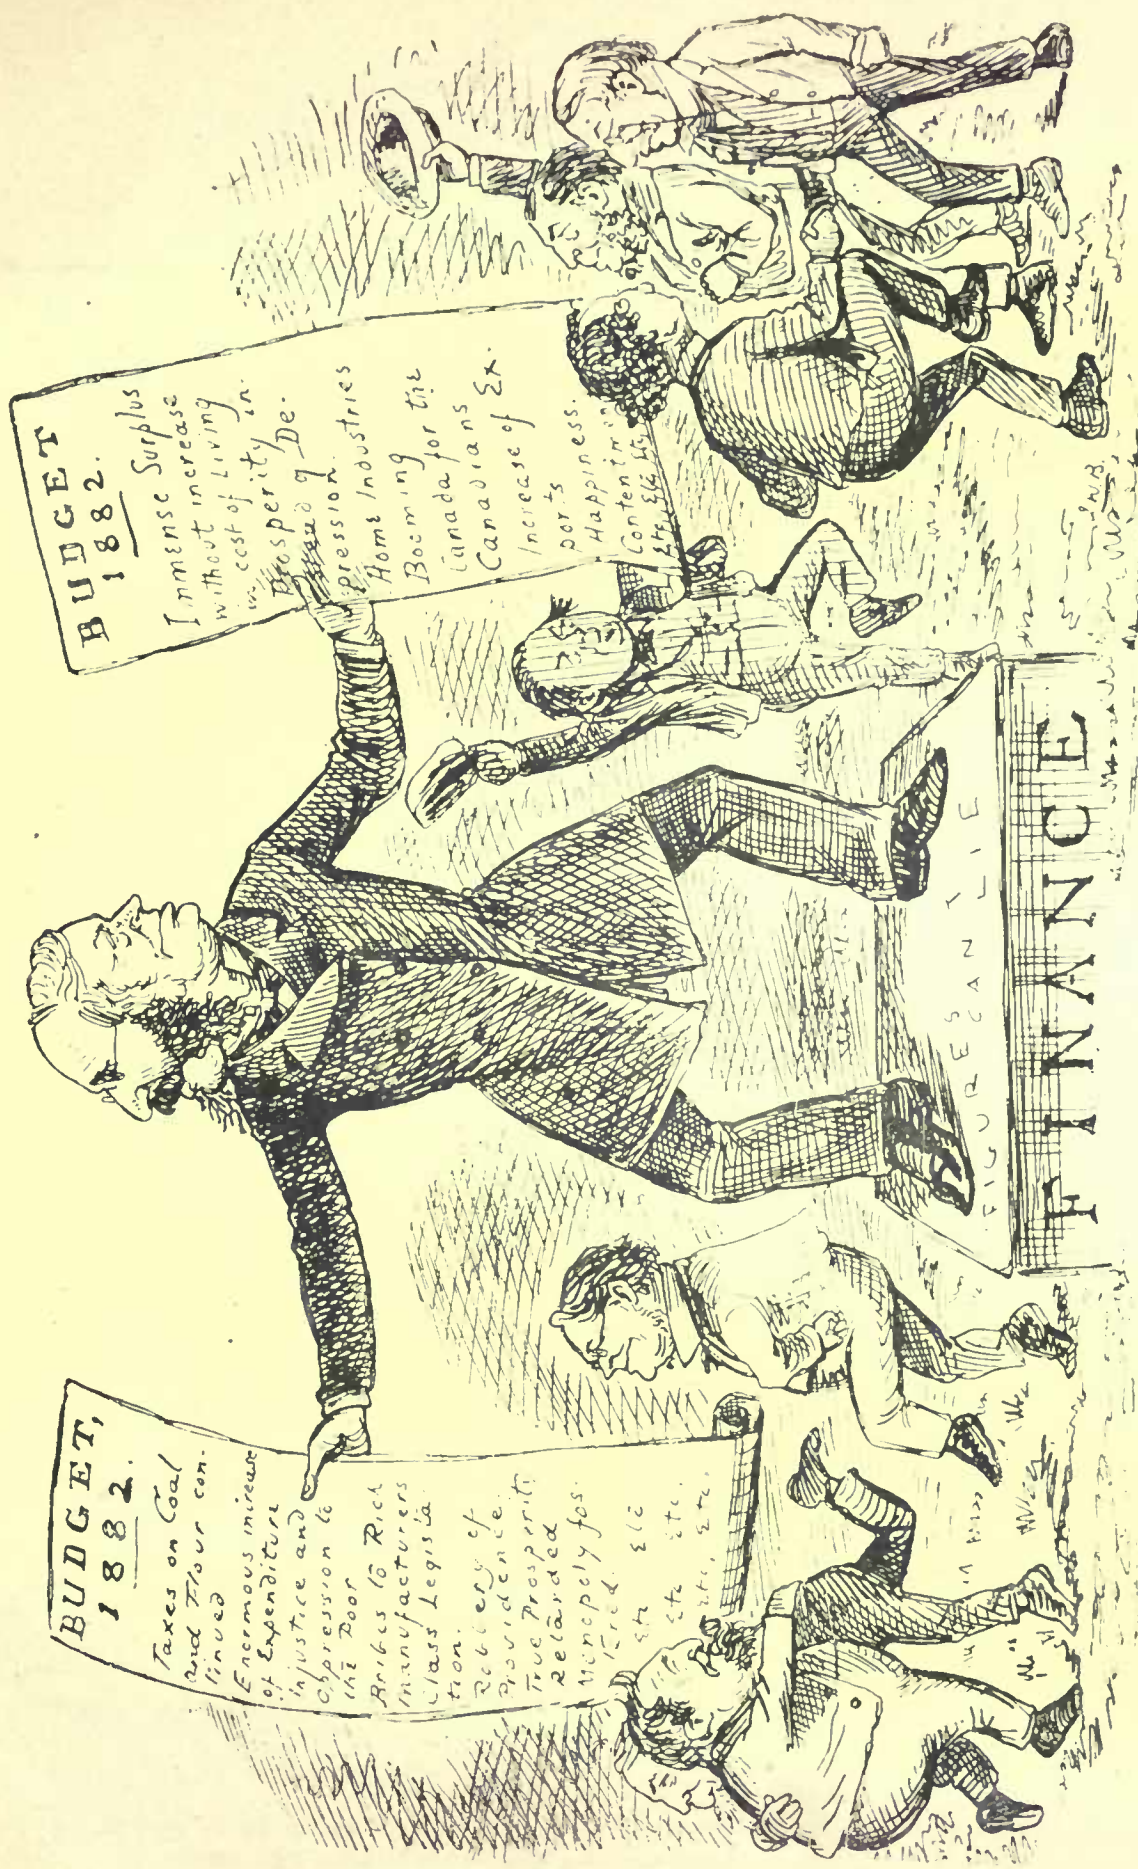 BUDGET,
1882.
Taxes on Coal
and Flour con-
tinued
Enormous increase
of Expenditure
injustice and
Oppression to
the Poor
Bribes to Rich
manufacturers
Class Legisla-
tion.
Robbery of
Providence.
True Prosperity
Retarded
Monopoly fos-
tered.
etc etc
etc etc.
etc, etc.
BUDGET
1882.
Immense Surplus
without increase
cost of Living
Prosperity in-
stead of De-
pression.
Home Industries
Booming the
Canada for the
Canadians
Increase of Ex-
ports
Happiness.
Contentment
etc etc etc
FIGURES CAN T LIE
FINANCE